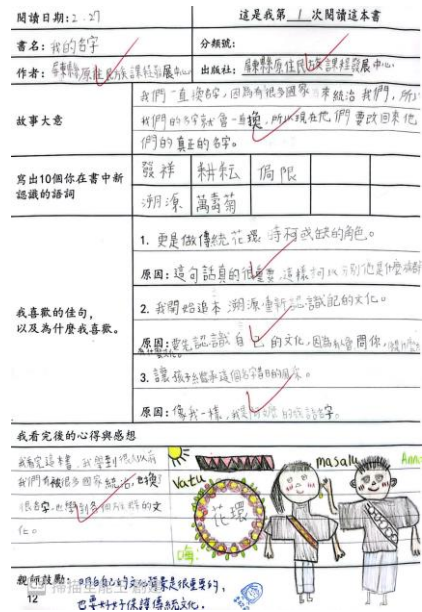 閱讀日期:2.27
這是我第1次閱讀這本書
書名:我的名字
分類號:
作者:屏東縣原住民族課程發展中心
出版社:屏東縣原住民族課程發展中心
故事大意
我們一直換名字,因為有很多國家來統治我們,所以
我們的名字就會一直換,所以現在他們要改回來他
們的真正的名字。
寫出10個你在書中新
認識的語詞
發祥 耕耘 侷限
溯源 萬壽菊
我喜歡的佳句,
以及為什麼我喜歡。
1. 更是做傳統花環時不可或缺的角色。
原因:這句話真的很重要,這樣可以分別他是什麼族群
2. 我開始追本溯源重新認識自己的文化。
原因:要先認識自己的文化,因為有會問你,
3. 讓孩子
原因:像我一樣,我是
我看完後的心得與感想
我看完這本書,我學到很久以前
我們有被很多國家統治,也換
很名字,也學到各個族群的文
化。
vatu
花環
masalu
親師鼓勵:明白自己的文化背景是很重要的,
也要好好保護傳統文化。
12